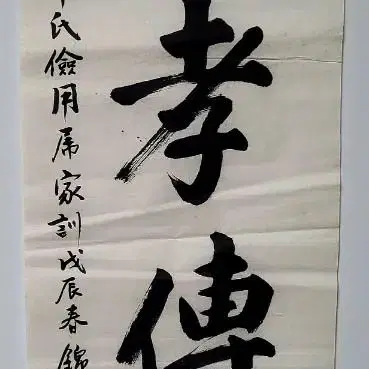 孝傳
氏儉用家訓戊辰春錦